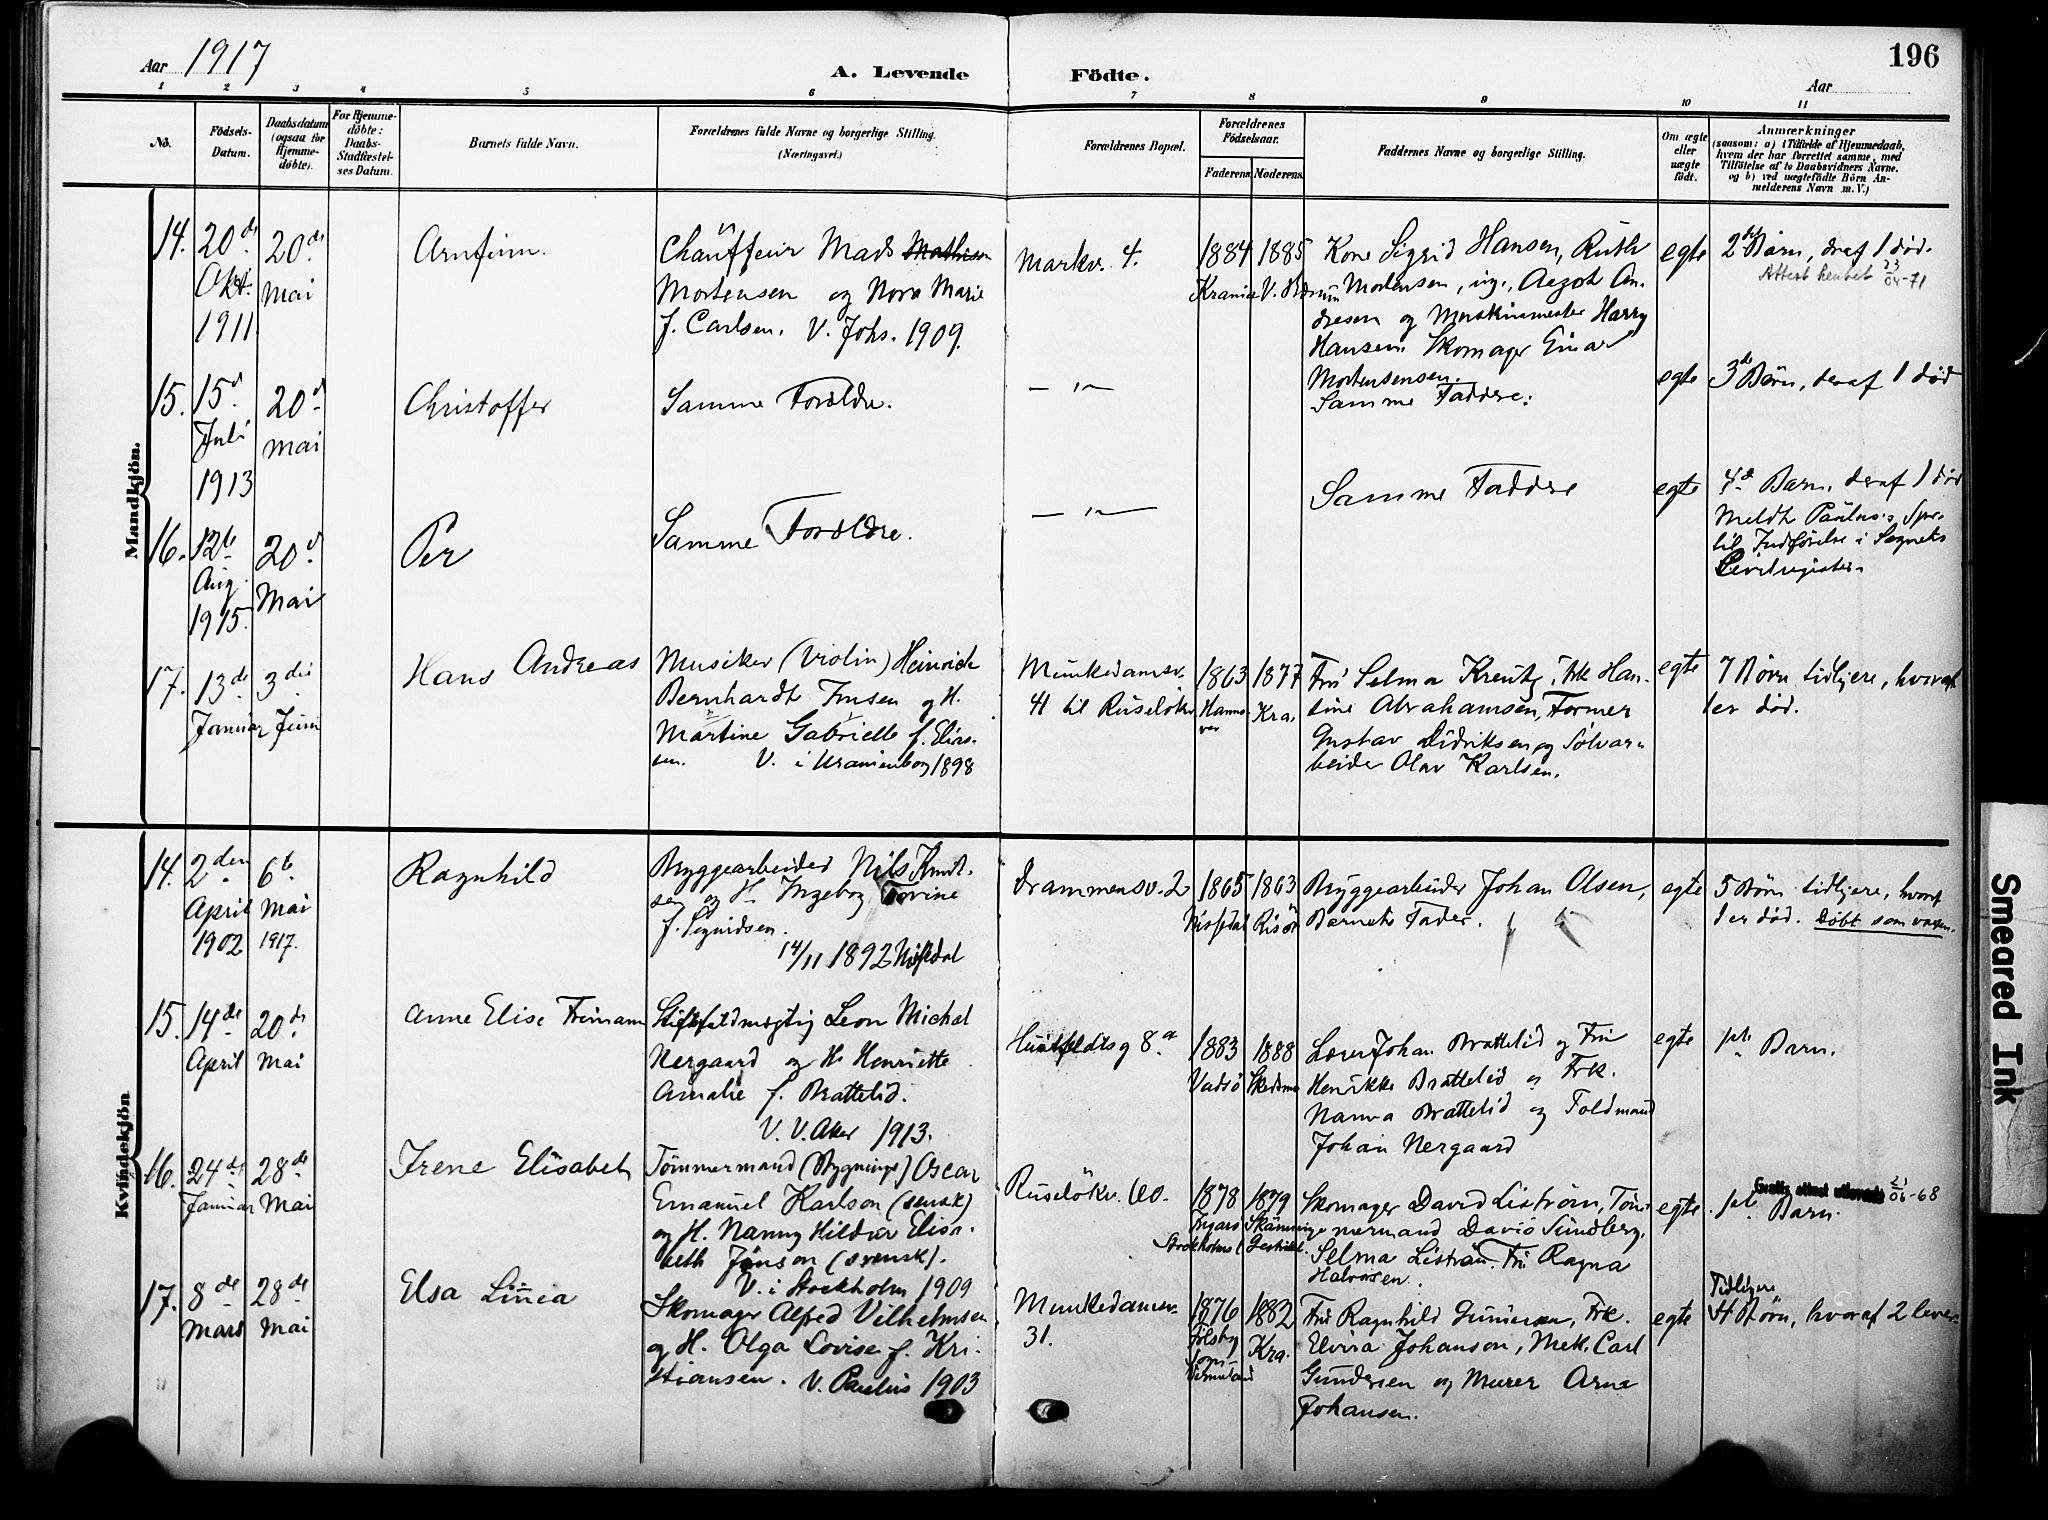 Aar 1917
A. Levende
Födte.
196
Aar
1 2 3 4 5 6 7 8 9 10 11
No.
Födsels-
Datum.
Daabsdatum
(ogsaa for
Hjemme-
döbte).
For Hjemme-
döbte:
Daabs-
Stadfæstel-
ses Datum.
Barnets fulde Navn.
Forældrenes fulde Navne og borgerlige Stilling.
(Næringsvei.)
Forældrenes Bopæl.
Forældrenes
Födselsaar.
Faderens.
Moderens.
Faddernes Navne og borgerlige Stilling.
Om ægte
eller
uægte
födt.
Anmærkninger
(saasom: a) i Tilfælde af Hjemmedaab,
hvem der har forrettet samme, med
Tilföielse af to Daabsvidners Navne.
og b) ved uægtefödte Börn An-
melderens Navn m. V.)
Mandkjön.
14.
20de
Okt.
1911
20de
Mai
Arnfinn.
Chauffeur Mads Mathisen
Mortensen og Nora Marie
f. Carlsen. V. Johs. 1909.
Markv. 4.
1884
Krania
1885
V. Bærum
Kone Sigrid Hansen, Ruth
Mortensen, ug., Aagot An-
dresen og Maskinmester Harry
Hansen. Skomager Einar
Mortensensen.
egte
2det Barn, deraf 1 död.
23
04-71
15.
15d
Juli
1913
20d
Mai
Christoffer
Samme Forældre.
— „ —
Samme Faddere:
egte
3de Barn, deraf 1 död
16.
12te
Aug.
1915.
20d
Mai
Per
Samme Forældre.
— „ —
Samme Faddere
egte
4de Barn, deraf 1 död
til Indförelse i Sognets
17.
13de
Januar
3die
Juni
Hans Andreas
Musiker (Violin) Heinrich
Bernhardt Insen og H.
Martine Gabrielle f. Elias-
sen. V. i Uranienborg 1898
Munkedamsv.
41 til Ruselökv.
1863
Hanno-
ver
1877
Kra.
Fru Selma Kreutz, Frk Han-
sine Abrahamsen, Former
Gustav Didriksen og Sölvar-
beider Olav Karlsen.
egte
7 Börn tidligere, hvoraf
1 er död.
Kvindekjön
14.
2den
April
1902
6te
Mai
1917.
Ragnhild
Bryggearbeider Nils Knut-
sen og H. Ingeborg Torine
f. Sigurdsen.
14/11 1892 Nissedal
Drammensv. 2
1865
Nissedal
1863
Risör
Bryggearbeider Johan Olsen,
Barnets Fader.
egte
5 Börn tidligere, hvoraf
1 er död. Döbt som voxen.
15.
14de
April
20de
Mai
Anne Elise Frimann
Stiftsfuldmægtig Leon Michal
Nergaard og H. Henriette
Amalie f. Brattelid.
V. V. Aker 1913.
Huitfeldtsg 8a
1883
Vadsö
1888
Skedsmo
Lærer Johan Brattelid og Fru
Henrikke Brattelid og Frk.
Nanna Brattelid og Toldmand
Johan Nergaard
egte
1ste Barn.
16.
24de
Januar
28de
Mai
Irene Elisabet
Tömmermand (Bygnings) Oscar
Emanuel Karlson (svensk)
og H. Nanny Hildur Elisa-
beth Jönson (svensk).
V. i Stockholm 1909
Ruselökv. 60.
1878
Stockholms l
1879
Skomager David Liström, Töm-
mermand David Sundberg,
Selma Liström. Fru Ragna
Halvorsen.
egte
Gratis attest utferdiget 21
06-68
1ste Barn.
17.
8de
Mars
28de
Mai
Elsa Linnea
Skomager Alfred Vilhelmsen
og H. Olga Lovise f. Kri-
stiansen. V. Paulus 1903
Munkedamsv.
31.
1876
1882
Kra.
Fru Ragnhild Gundersen, Frk.
Elvira Johanson, Mek. Carl
Gundersen og Murer Arne
Johansen.
egte
Tidligere
4 Börn, hvoraf 2 lever.
Smeared Ink